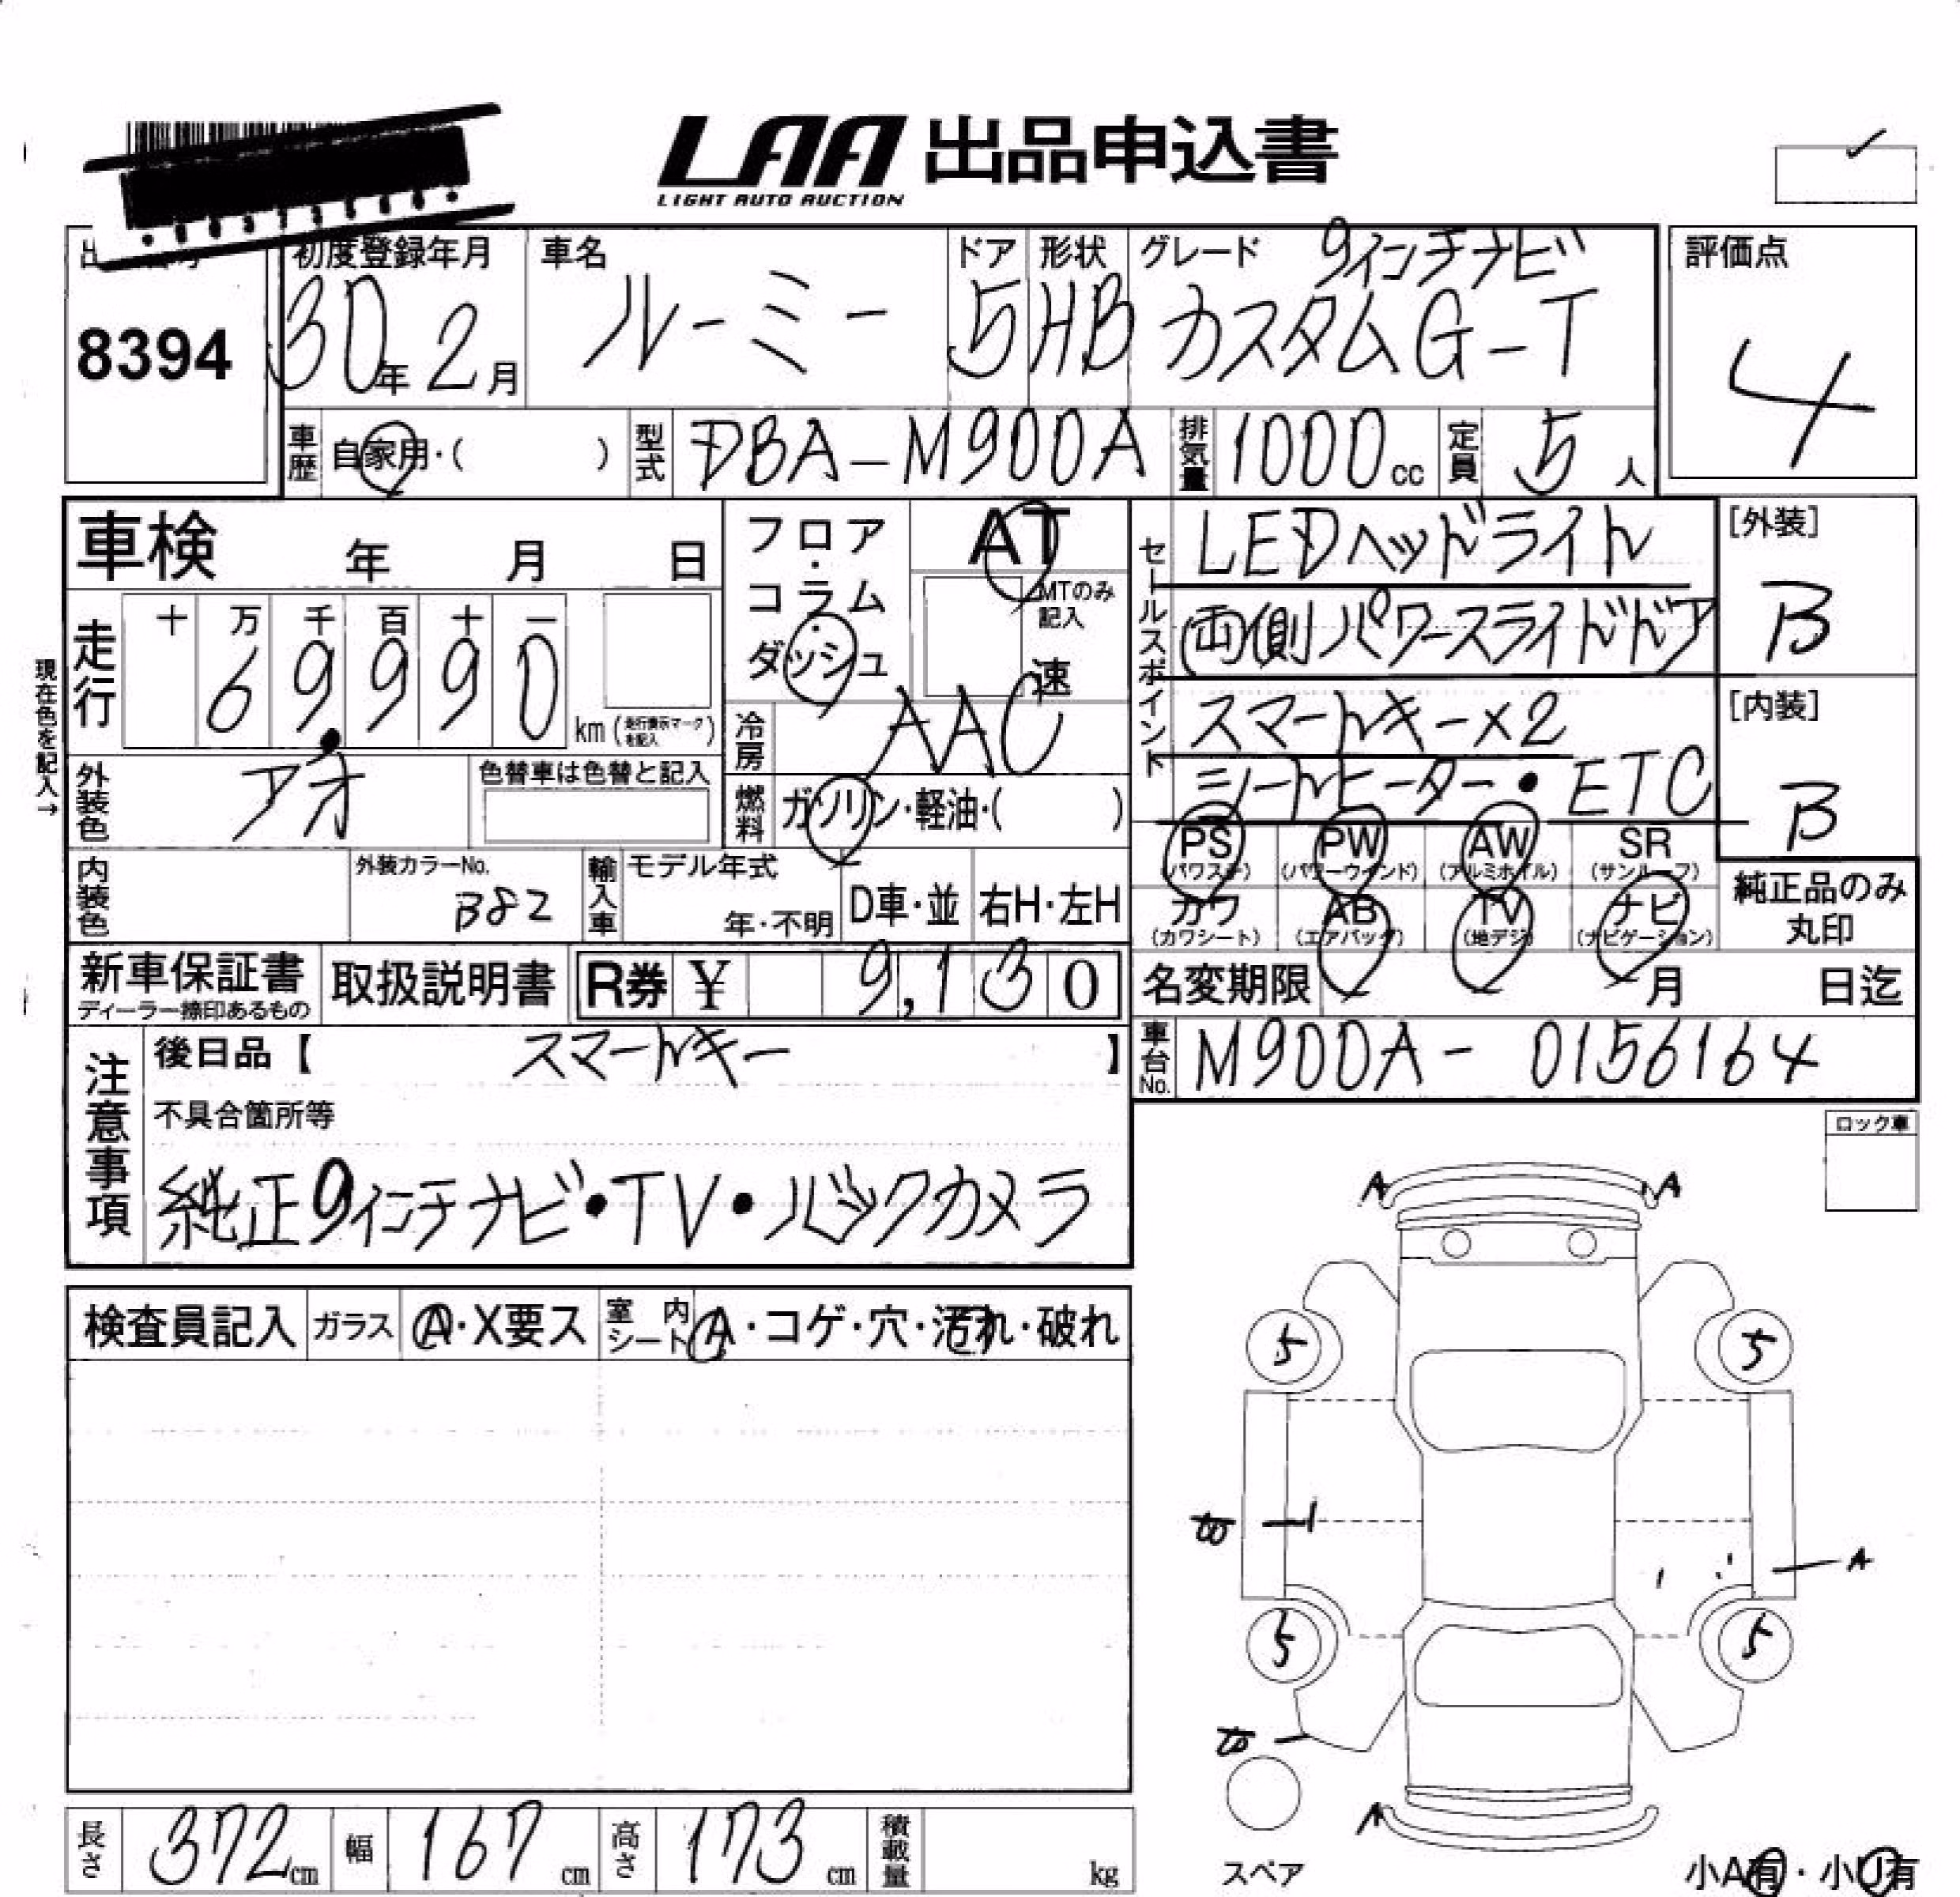 LAA 出品申込書
LIGHT AUTO AUCTION
8394
初度登録年月 車名 ドア 形状 グレード 9インチナビ 評価点
30年 2月 ルーミー 5 HB カスタムG-T 4
車歴 自家用・( ) 型式 DBA-M900A 排気量 1000cc 定員 5人
車検 年 月 日
フロア・コラム・ダッシュ AT
MTのみ記入 速
セールスポイント
LEDヘッドライト
両側パワースライドドア
スマートキー×2
シートヒーター・ETC
[外装] B
[内装] B
現在色を記入→
走行 十 万 千 百 十 一
69,990 km (走行表示マークを記入)
冷房 AAC
外装色 アオ 色替車は色替と記入
燃料 ガソリン・軽油・( )
内装色 外装カラーNo. B82 輸入車 モデル年式 年・不明 D車・並 右H・左H
PS (パワステ) PW (パワーウインド) AW (アルミホイル) SR (サンルーフ)
カワ (カワシート) AB (エアバッグ) TV (地デジ) ナビ (ナビゲーション)
純正品のみ丸印
新車保証書 ディーラー捺印あるもの 取扱説明書 R券 ¥ 9,130
名変期限 月 日迄
車台No. M900A-0156164
注意事項
後日品【 スマートキー 】
不具合箇所等
純正9インチナビ・TV・バックカメラ
ロック車
検査員記入 ガラス A・X要ス 室内シート A・コゲ・穴・汚れ・破れ
A A
5 5
A
5 5
A
スペア
小A有・小U有
長さ 372cm 幅 167cm 高さ 173cm 積載量 kg